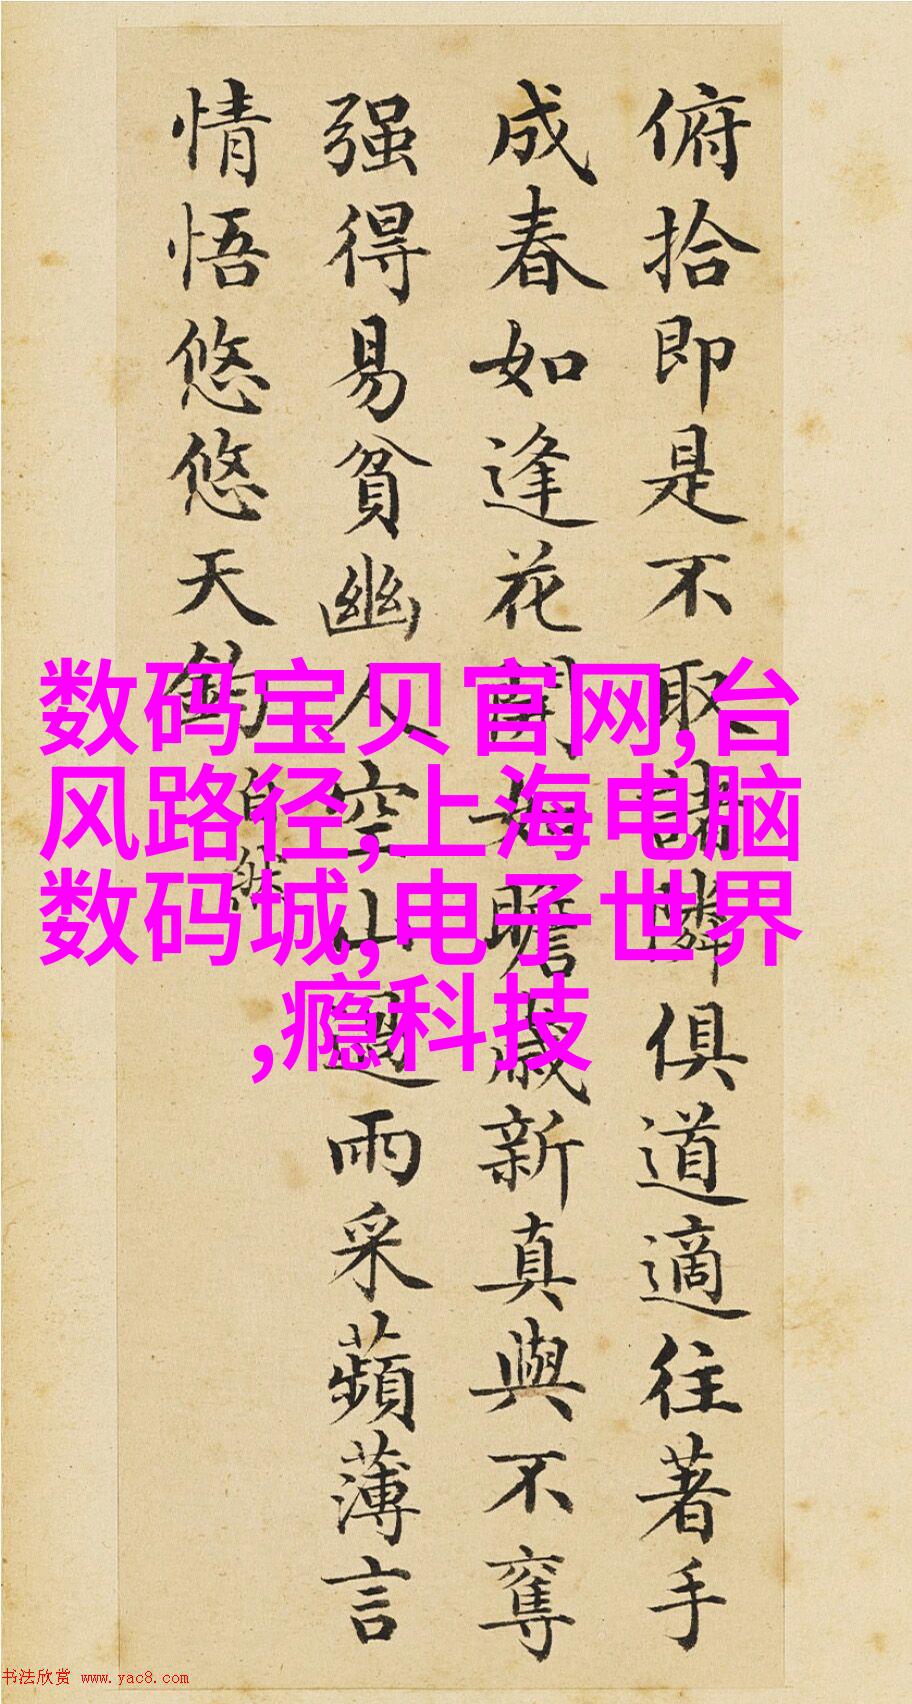 俯拾即是不取諸隣俱道適往著手
成春如逢花開如瞻歳新真與不奪
强得易貧幽人空山過雨采蘋薄言
情悟悠悠天鈞
自然
数码宝贝官网,台
风路径,上海电脑
数码城,电子世界
,瘾科技
书法欣赏 www.yac8.com